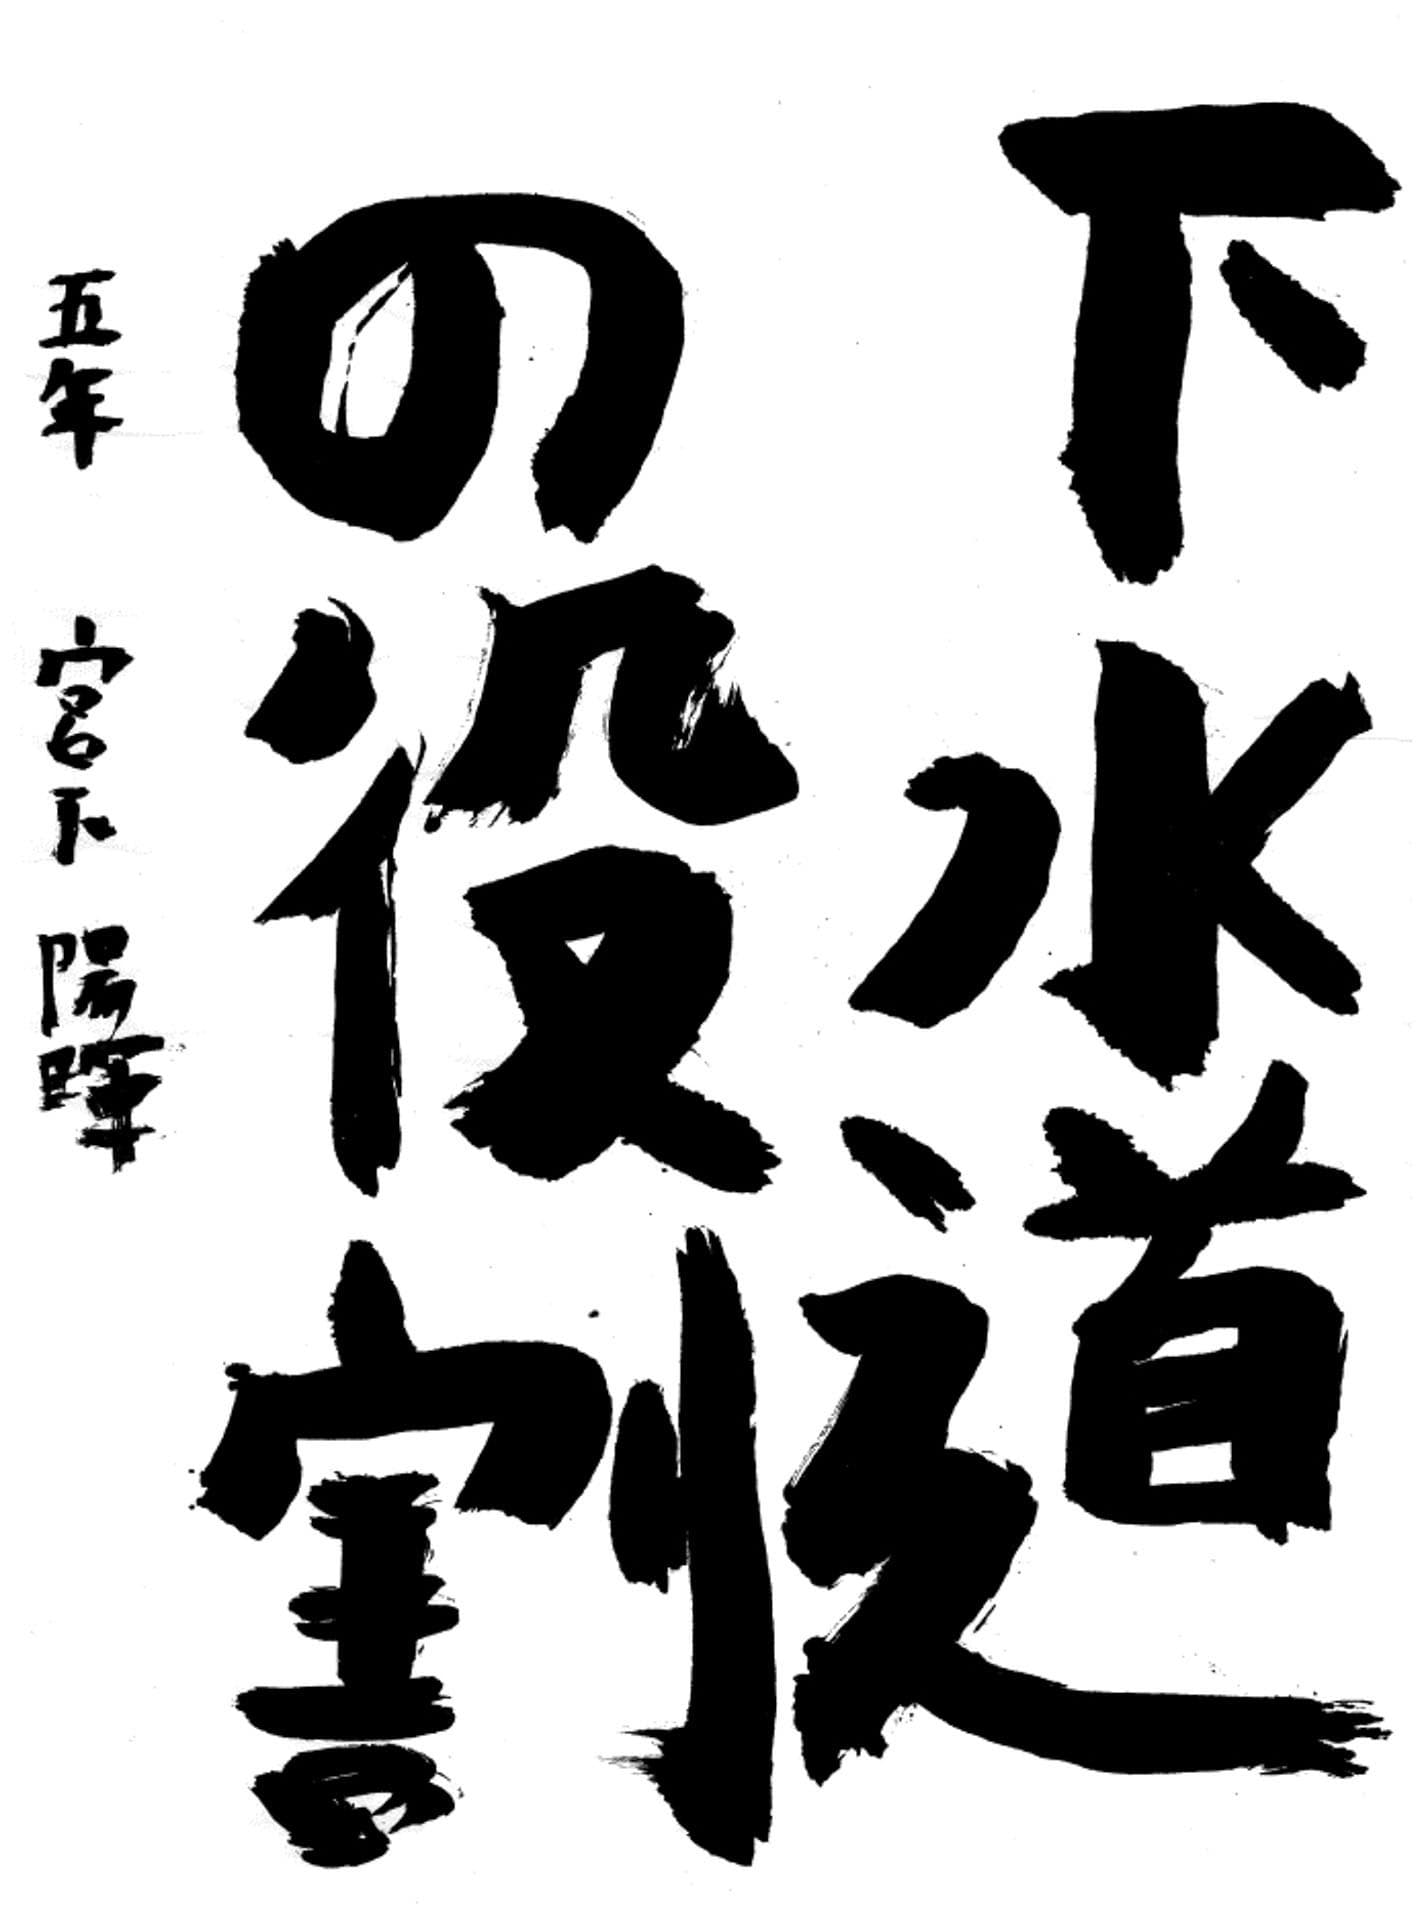 下水道
の役割
五年 宮下 陽暉